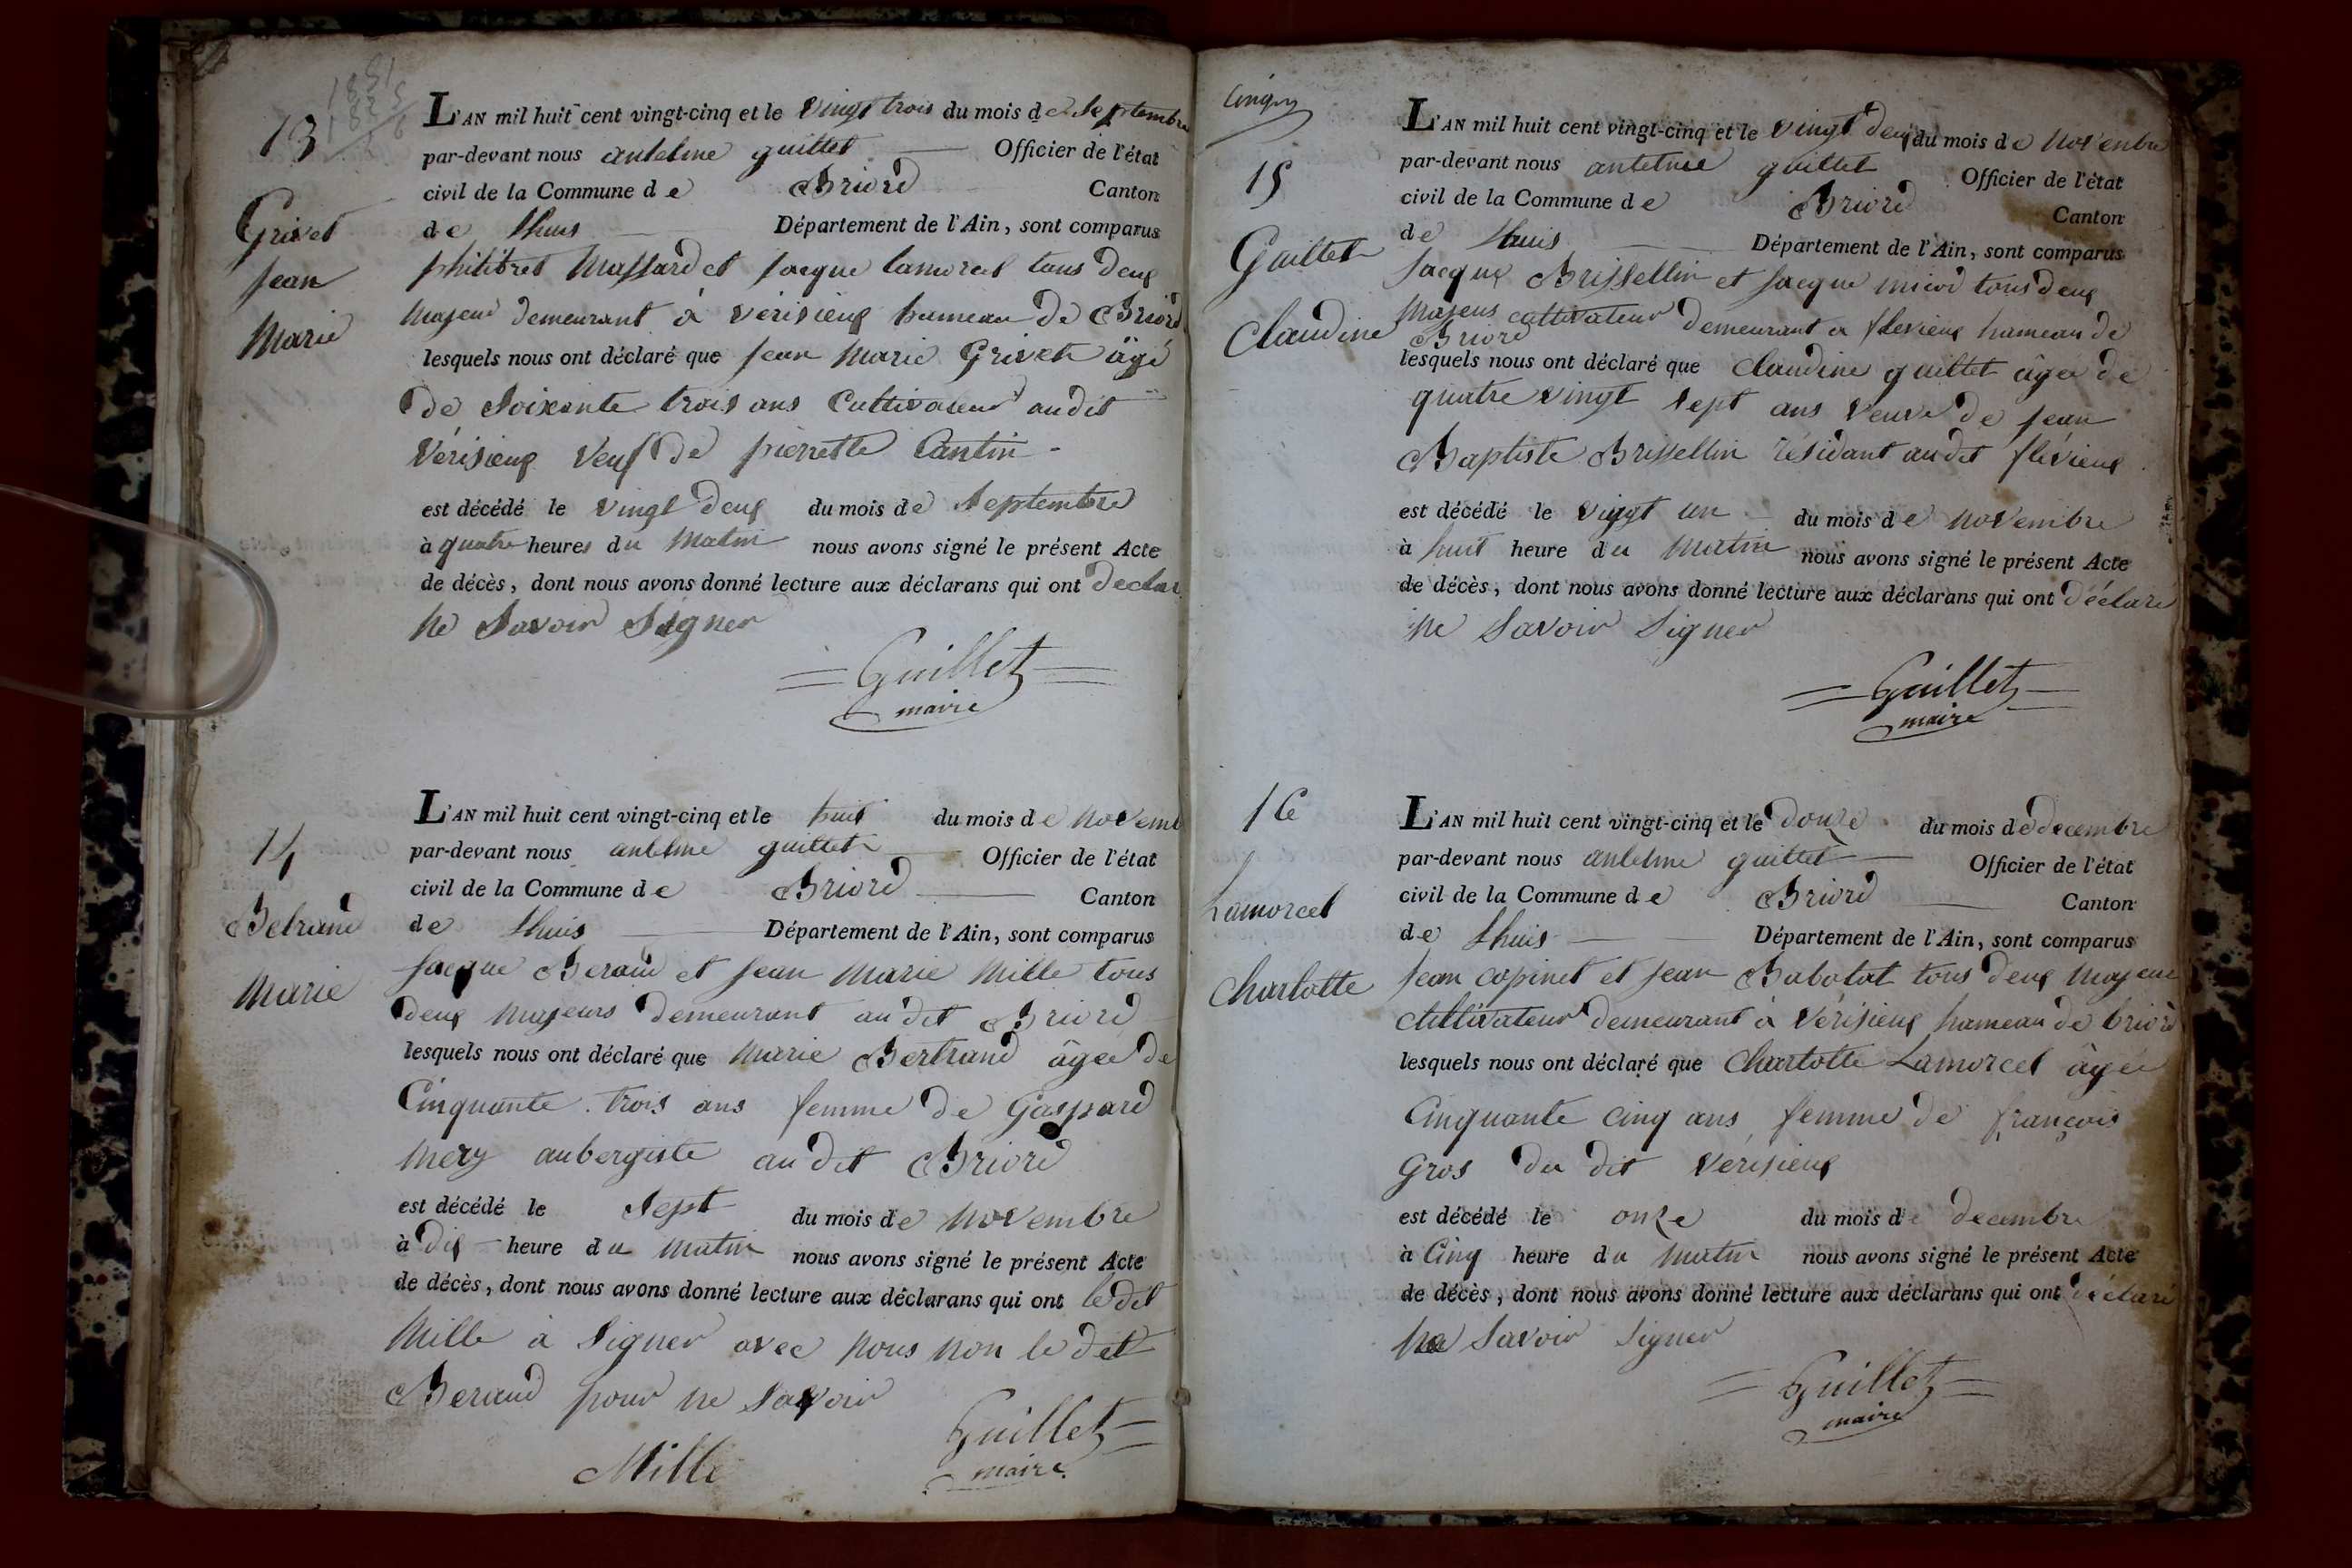 13
Grivet
Jean
Marie
L'AN mil huit cent vingt-cinq et le vingt trois du mois de Septembre
par-devant nous antelme guillet Officier de l'état
civil de la Commune de Briord Canton
de Lhuis Département de l'Ain, sont comparus
philibret Massard et Jacque Lamorcel tous deux
Majeur demeurant à vérisieux hameau de Briord
lesquels nous ont déclaré que Jean Marie Grivet âgé
de Soixente trois ans Cultivateur audit
Vérisieux Veuf de pierrette Cantin
est décédé le vingt deux du mois de Septembre
à quatre heures du Matin nous avons signé le présent Acte
de décès, dont nous avons donné lecture aux déclarans qui ont declar
ne Savoir Signer
Guillet
maire
14
Betrand
Marie
L'AN mil huit cent vingt-cinq et le huit du mois de Novemb
par-devant nous antelme guillet Officier de l'état
civil de la Commune de Briord Canton
de Lhuis Département de l'Ain, sont comparus
Jacque Beraud et Jean Marie Mille tous
deux Majeurs demeurant au dit Briord
lesquels nous ont déclaré que Marie Bertrand âgée de
Cinquante trois ans femme de Gaspard
Mery aubergiste au dit Briord
est décédé le Sept du mois de Novembre
à dix heure du Matin nous avons signé le présent Acte
de décès, dont nous avons donné lecture aux déclarans qui ont le dit
Mille à Signer avec nous non le dit
Beraud pour ne Savoir
Mille
Guillet
maire
Cinq
15
Guillet
Claudine
L'AN mil huit cent vingt-cinq et le vingt deux du mois de Novenbre
par-devant nous antelme guillet Officier de l'état
civil de la Commune de Briord Canton
de Lhuis Département de l'Ain, sont comparus
Jacque Brissellin et Jacque micod tous deux
Majeus cultivateur demeurant a flevieux hameau de
Briord
lesquels nous ont déclaré que Claudine guillet âgée de
quatre vingt sept ans veuve de jean
Baptiste Brissellin résidant audit flévieux
est décédé le vingt un du mois de Novembre
à huit heure du Matin nous avons signé le présent Acte
de décès, dont nous avons donné lecture aux déclarans qui ont déclaré
ne Savoir Signer
Guillet
maire
16
Lamorcel
Charlotte
L'AN mil huit cent vingt-cinq et le douze du mois de decembre
par-devant nous antelme guillet Officier de l'état
civil de la Commune de Briord Canton
de Lhuis Département de l'Ain, sont comparus
Jean copinet et Jean Babolat tous deux Majeur
Cultivateur demeurant à Vérisieux hameau de briord
lesquels nous ont déclaré que Charlotte Lamorcel âgée
Cinquante cinq ans femme de françois
Gros du dit Vérisieux
est décédé le onze du mois de decembre
à Cinq heure du Matin nous avons signé le présent Acte
de décès, dont nous avons donné lecture aux déclarans qui ont déclaré
ne Savoir Signer
Guillet
maire